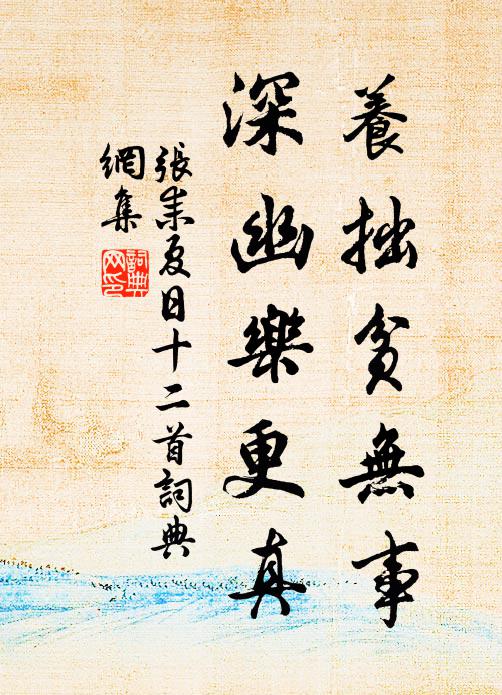 養拙貧無事
深幽樂更真
張耒夏日十二首詞典
網集
詞典
网印